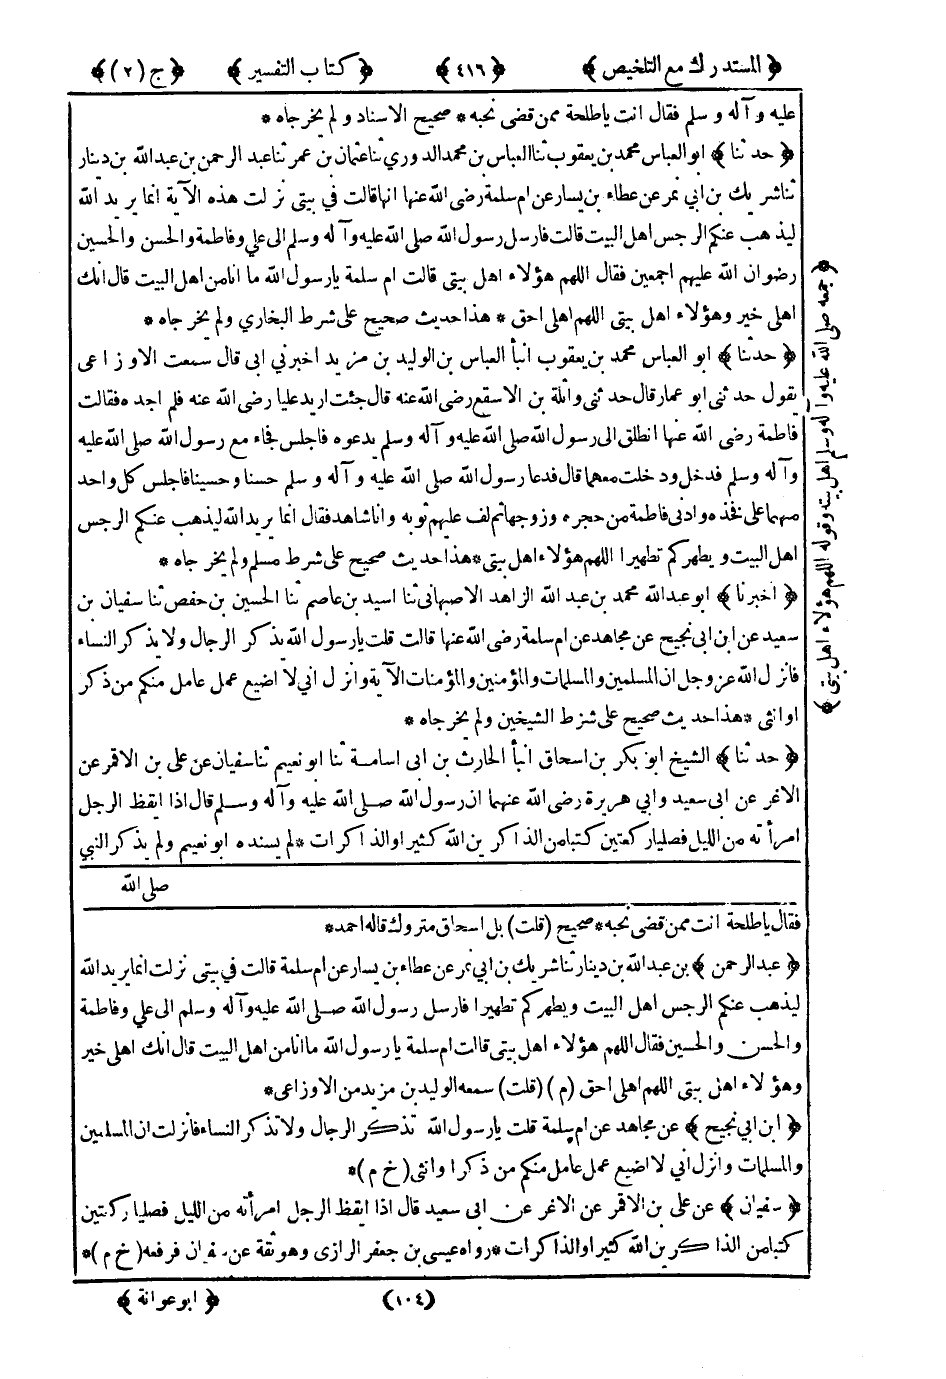 ﴿ المستدرك مع التلخيص ﴾ ﴿ ٤١٦ ﴾ ﴿ كتاب التفسير ﴾ ﴿ ج (٢) ﴾
عليه وآله وسلم فقال انت ياطلحة ممن قضى نحبه * صحيح الاسناد ولم يخرجاه *
﴿ حدثنا ﴾ ابو العباس محمد بن يعقوب ثنا العباس بن محمد الدوري ثنا عثمان بن عمر ثنا عبد الرحمن بن عبد الله بن دينار
ثنا شريك بن ابي نمر عن عطاء بن يسار عن ام سلمة رضى الله عنها انها قالت في بيتى نزلت هذه الآية انما يريد الله
ليذهب عنكم الرجس اهل البيت قالت فارسل رسول الله صلى الله عليه وآله وسلم الى علي وفاطمة والحسن والحسين
رضوان الله عليهم اجمعين فقال اللهم هؤلاء اهل بيتى قالت ام سلمة يارسول الله ما انا من اهل البيت قال انك
اهلى خير وهؤلاء اهل بيتى اللهم اهلى احق * هذا حديث صحيح على شرط البخاري ولم يخرجاه *
﴿ حدثنا ﴾ ابو العباس محمد بن يعقوب انبأ العباس بن الوليد بن مزيد اخبرني ابى قال سمعت الاوزاعى
يقول حدثنى ابو عمار قال حدثنى واثلة بن الاسقع رضى الله عنه قال جئت اريد عليا رضى الله عنه فلم اجده فقالت
فاطمة رضى الله عنها انطلق الى رسول الله صلى الله عليه وآله وسلم يدعوه فاجلس فجاء مع رسول الله صلى الله عليه
وآله وسلم فدخل ودخلت معهما قال فدعا رسول الله صلى الله عليه وآله وسلم حسنا وحسينا فاجلس كل واحد
منهما على فخذه وادنى فاطمة من حجره وزوجها ثم لف عليهم ثوبه وانا شاهد فقال انما يريد الله ليذهب عنكم الرجس
اهل البيت ويطهركم تطهيرا اللهم هؤلاء اهل بيتى * هذا حديث صحيح على شرط مسلم ولم يخرجاه *
﴿ اخبرنا ﴾ ابو عبد الله محمد بن عبد الله الزاهد الاصبهانى ثنا اسيد بن عاصم ثنا الحسين بن حفص ثنا سفيان بن
سعيد عن ابن ابى نجيح عن مجاهد عن ام سلمة رضى الله عنها قالت قلت يارسول الله يذكر الرجال ولا يذكر النساء
فانزل الله عز وجل ان المسلمين والمسلمات والمؤمنين والمؤمنات الآية وانزل انى لا اضيع عمل عامل منكم من ذكر
او انثى * هذا حديث صحيح على شرط الشيخين ولم يخرجاه *
﴿ حدثنا ﴾ الشيخ ابو بكر بن اسحاق انبأ الحارث بن ابى اسامة ثنا ابو نعيم ثنا سفيان عن على بن الاقمر عن
الاغر عن ابى سعيد وابي هريرة رضى الله عنهما ان رسول الله صلى الله عليه وآله وسلم قال اذا ايقظ الرجل
امرأته من الليل فصليا ركعتين كتبا من الذاكرين الله كثيرا والذاكرات * لم يسنده ابو نعيم ولم يذكر النبي
صلى الله
﴿ جمعه صلى الله عليه وآله وسلم اهل بيته وقوله اللهم هؤلاء اهل بيتى ﴾
فقال ياطلحة انت ممن قضى نحبه * صحيح (قلت) بل اسحاق متروك قاله احمد *
﴿ عبد الرحمن ﴾ بن عبد الله بن دينار ثنا شريك بن ابي نمر عن عطاء بن يسار عن ام سلمة قالت في بيتى نزلت انما يريد الله
ليذهب عنكم الرجس اهل البيت ويطهركم تطهيرا فارسل رسول الله صلى الله عليه وآله وسلم الى علي وفاطمة
والحسن والحسين فقال اللهم هؤلاء اهل بيتى قالت ام سلمة يا رسول الله ما انا من اهل البيت قال انك اهلى خير
وهؤلاء اهل بيتى اللهم اهلى احق (م) (قلت) سمعه الوليد بن مزيد من الاوزاعى *
﴿ ابن ابي نجيح ﴾ عن مجاهد عن ام سلمة قلت يارسول الله تذكر الرجال ولا تذكر النساء فانزلت ان المسلمين
والمسلمات وانزل انى لا اضيع عمل عامل منكم من ذكر او انثى (خ م) *
﴿ سفيان ﴾ عن على بن الاقمر عن الاغر عن ابى سعيد قال اذا ايقظ الرجل امرأته من الليل فصليا ركعتين
كتبا من الذاكرين الله كثيرا والذاكرات * رواه عيسى بن جعفر الرازى وهو ثقة عن سفيان فرفعه (خ م) *
(١٠٤) ﴿ ابو عوانة ﴾